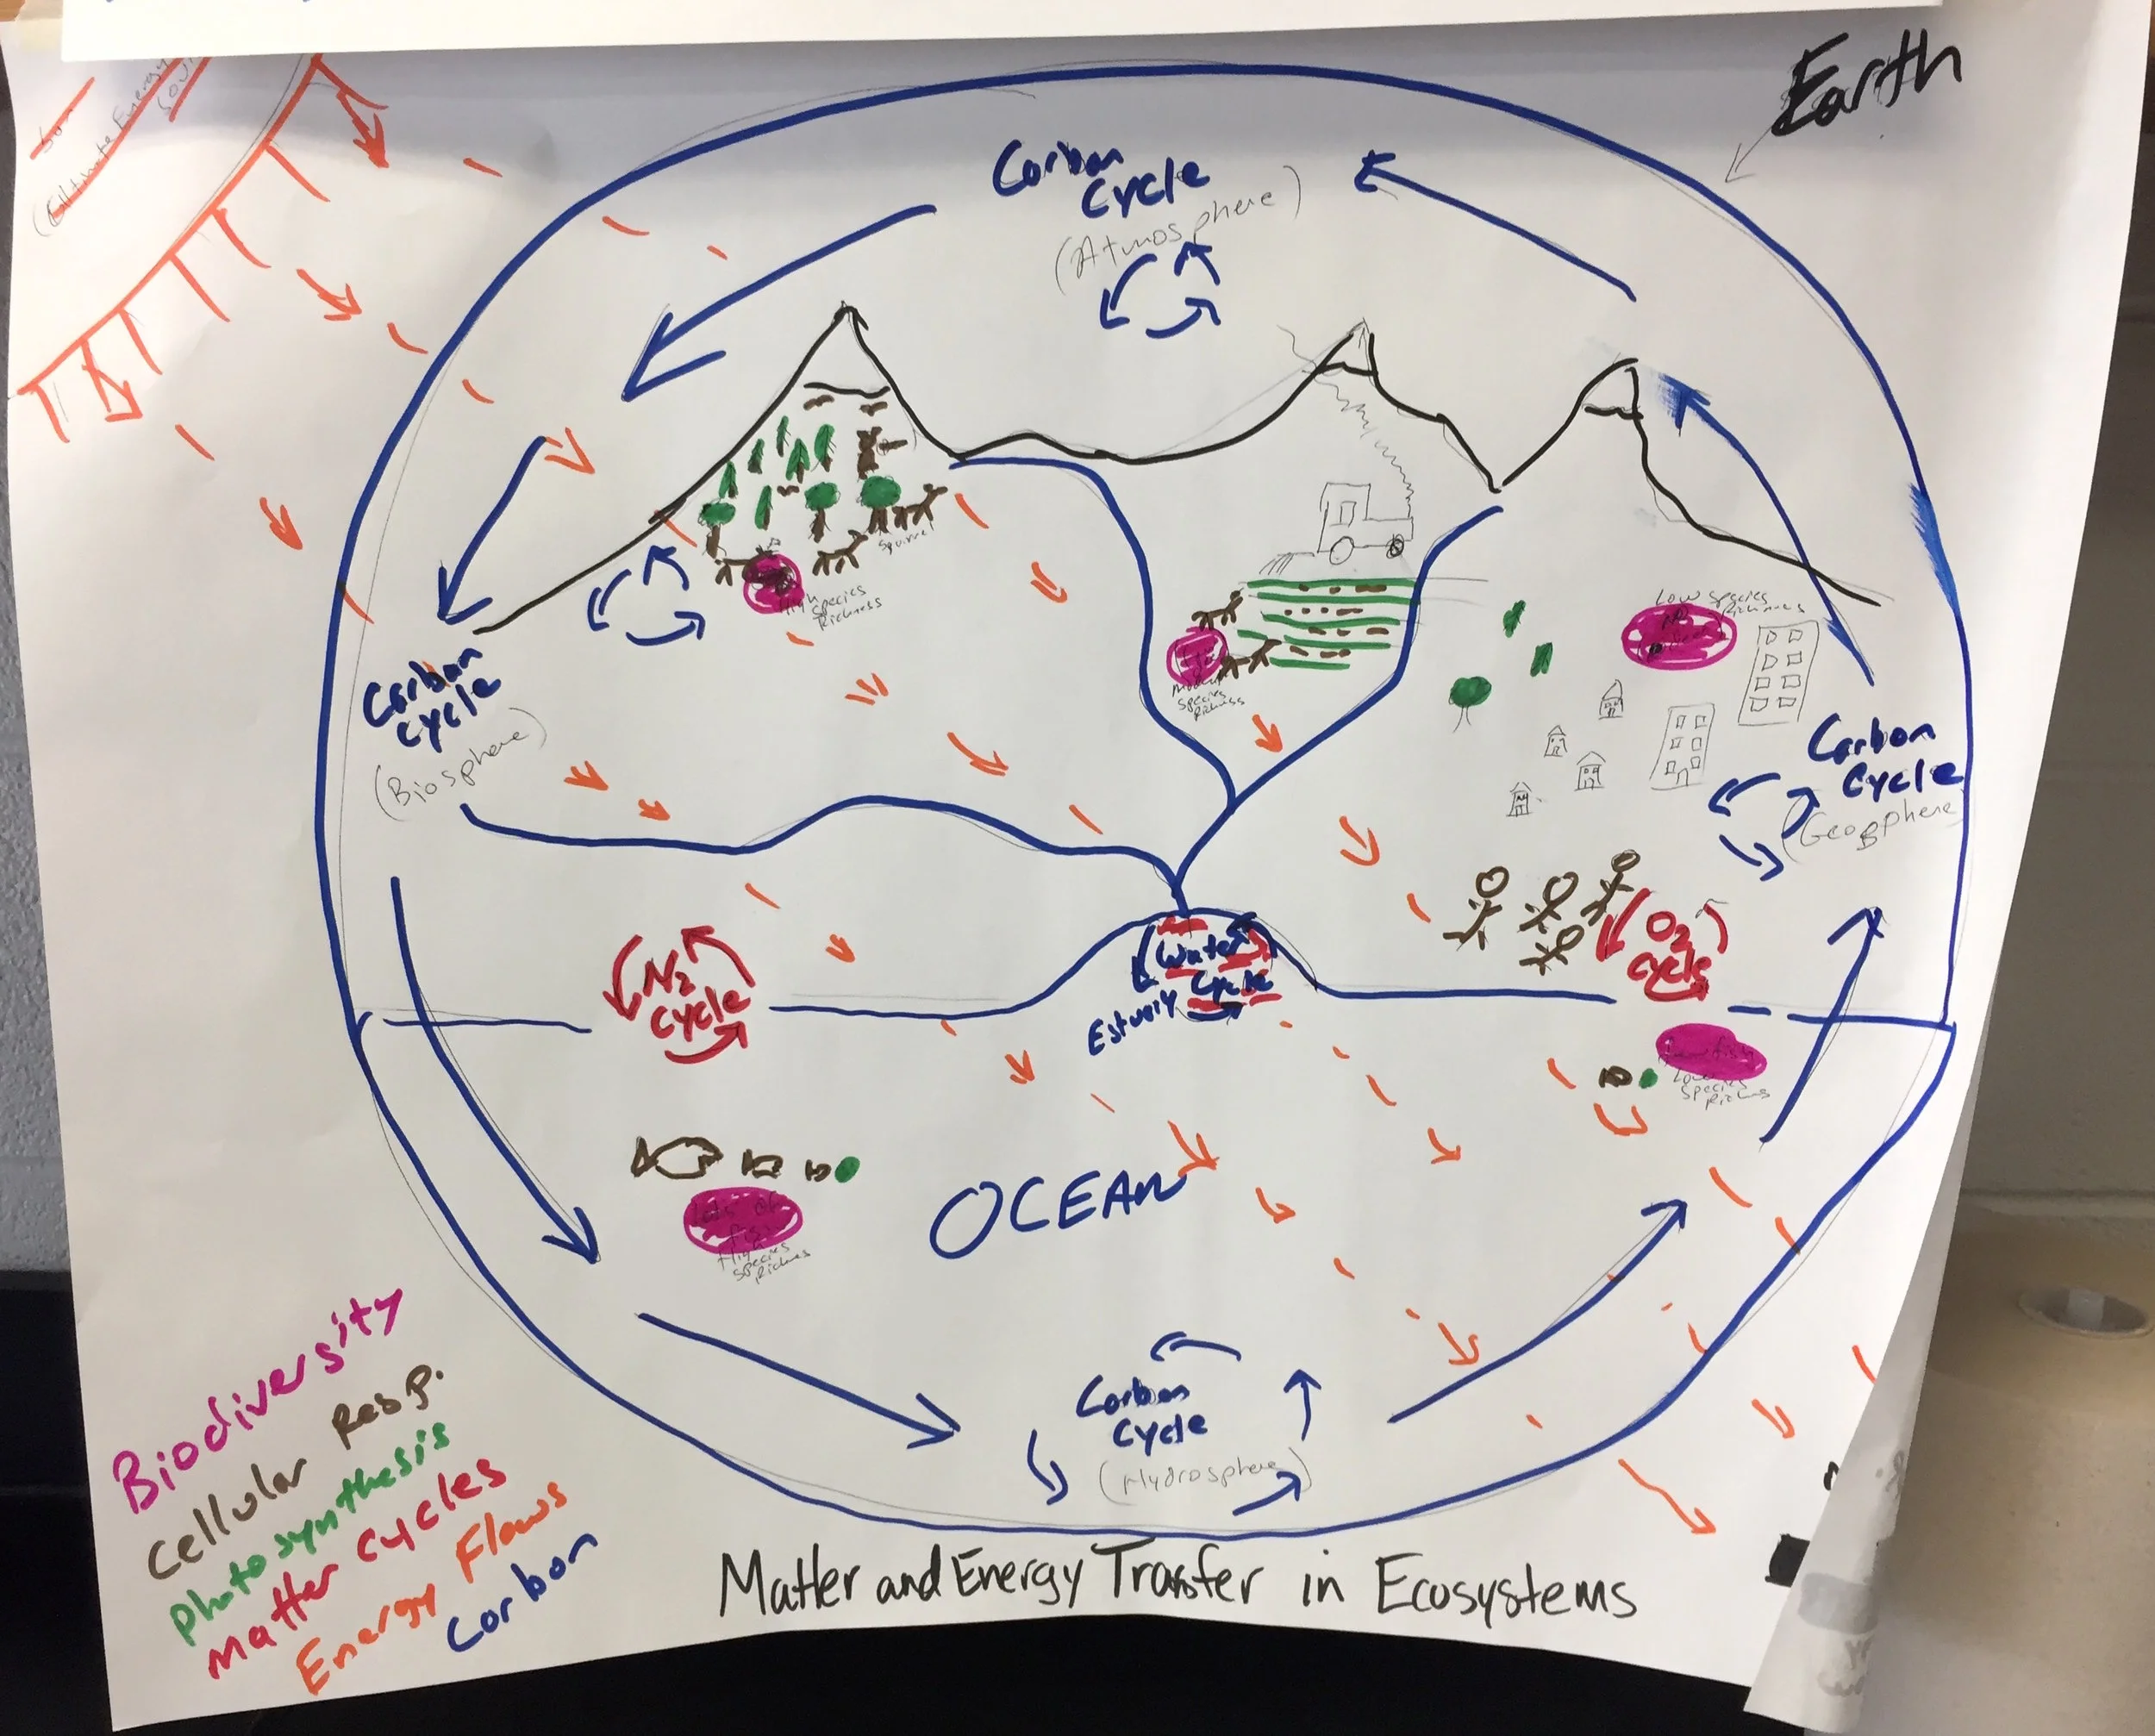 Sun
(Ultimate Energy
Earth
Carbon
Cycle
(Atmosphere)
Squirrel
High
Species
Richness
Species
Richness
Low species
Richness
Carbon
Cycle
(Biosphere)
Carbon
Cycle
(Geosphere)
N2
Cycle
Water
Cycle
Estuary
O2
Cycle
Low
Species
Richness
lots of
fish
High
Species
Richness
OCEAN
Carbon
Cycle
(Hydrosphere)
Biodiversity
Cellular Resp.
Photosynthesis
Matter Cycles
Energy Flows
Carbon
Matter and Energy Transfer in Ecosystems